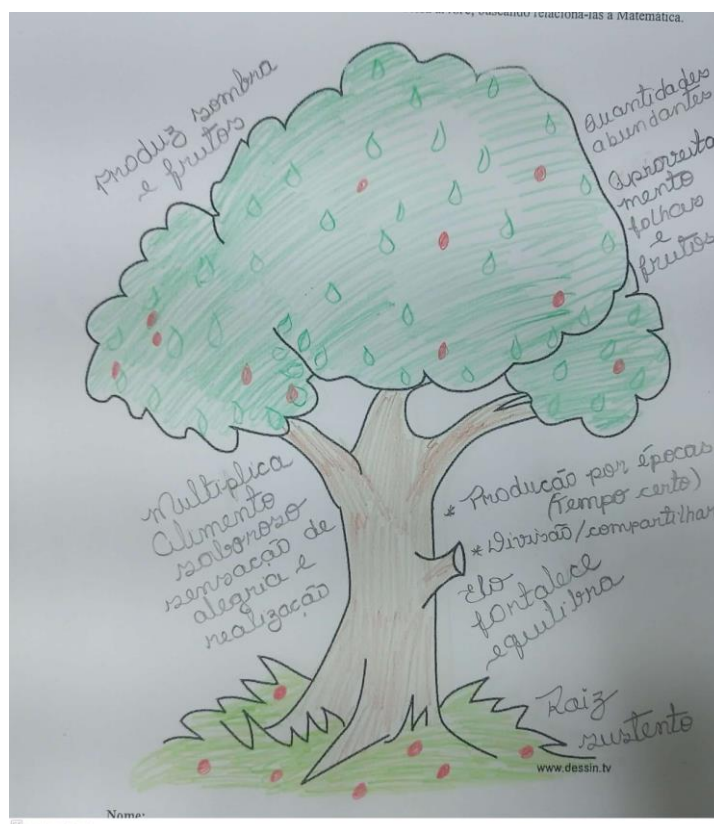 relacioná-las à Matemática.
Produz sombra
e frutos
Quantidades
abundantes
aproveita
mento
folhas
e
frutos
Multiplica
Alimento
saboroso
sensação de
alegria e
realização
* Produção por épocas
(Tempo certo)
* Divisão/compartilhar
Elo
fortalece
equilibra
Raiz
sustento
www.dessin.tv
Nome: